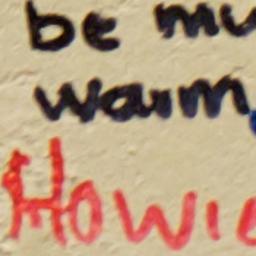 be mu
warm
Howie